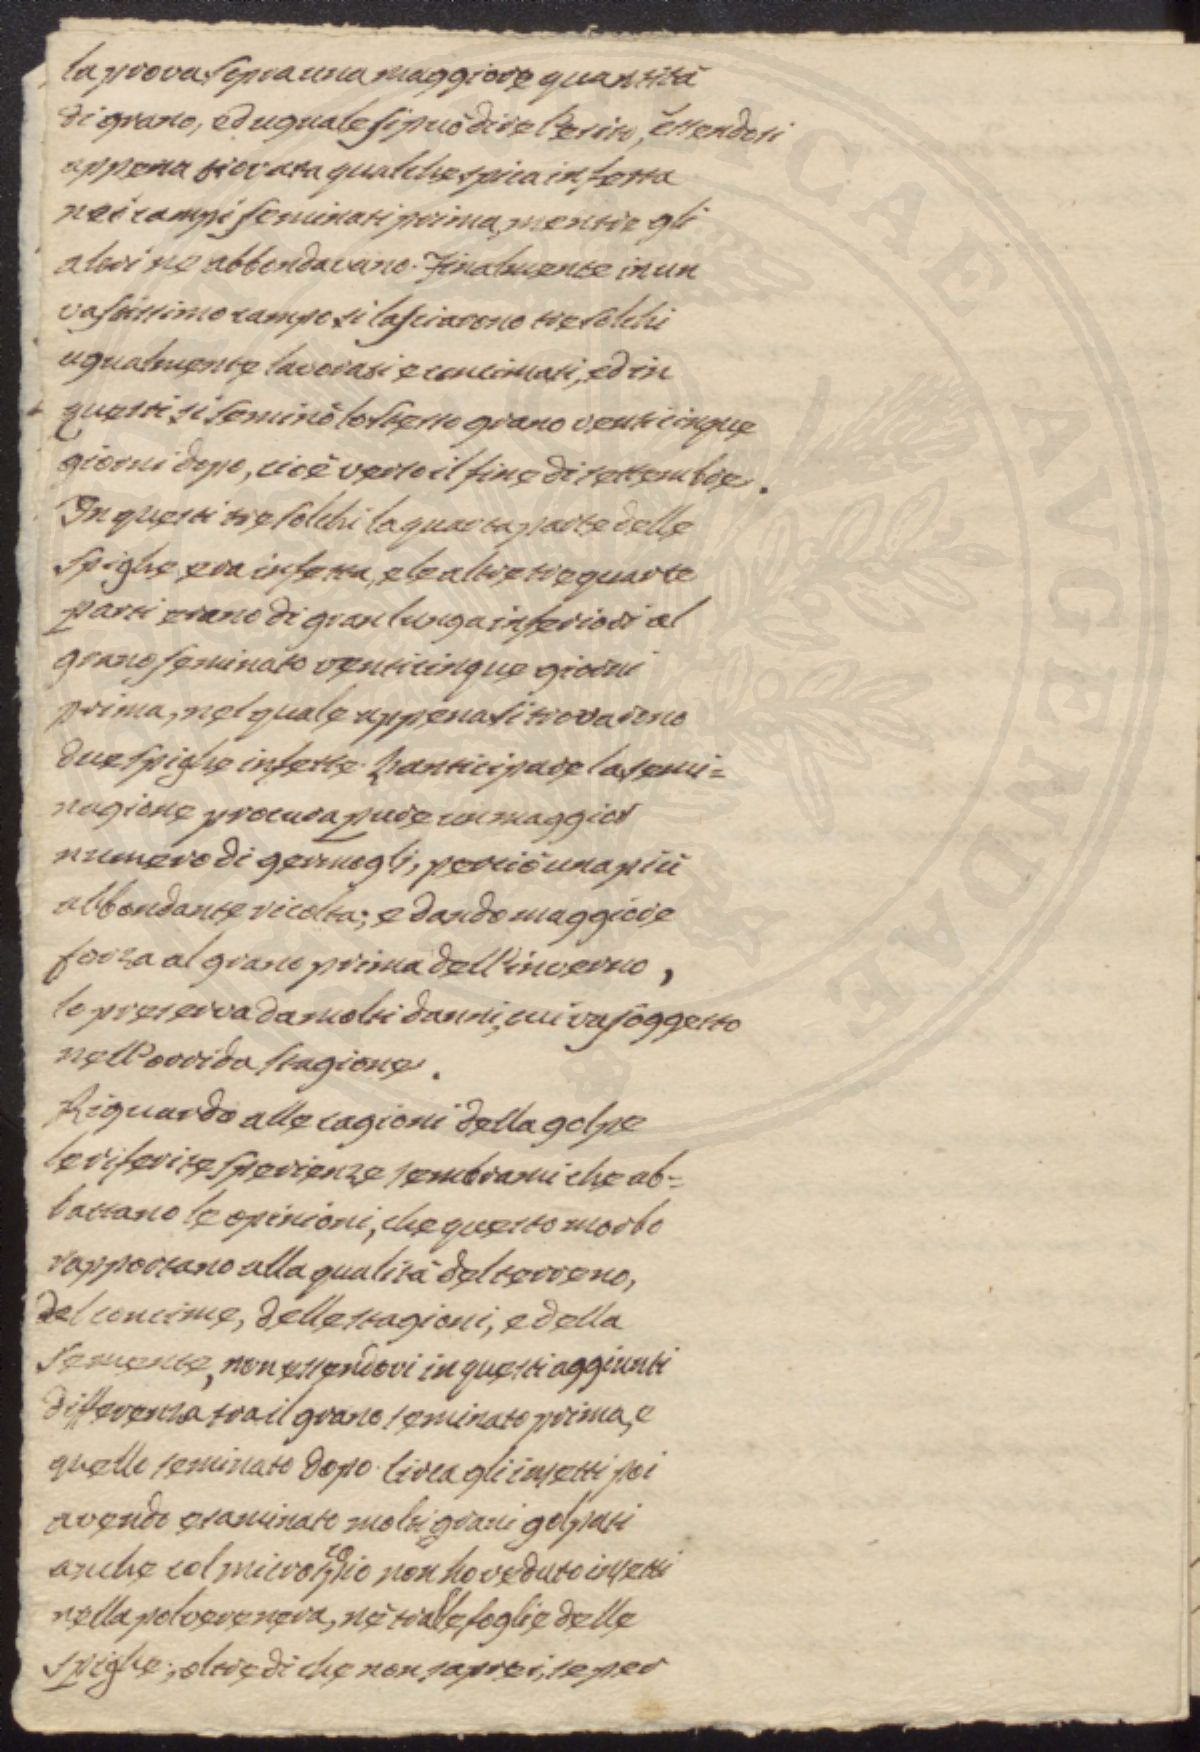 la prova sopra una maggiore quantità
di grano, ed uguale si può dire l'esito, essendosi
appena trovata qualche spica infetta
nei campi seminati prima, mentre gli
altri ne abbondavano. Finalmente in un
vastissimo campo si lasciarono tre solchi
ugualmente lavorati e concimati, ed in
questi si seminò lo stesso grano venticinque
giorni dopo, cioè verso il fine di settembre.
In questi tre solchi la quarta parte delle
spighe era infetta, e le altre tre quarte
parti erano di gran lunga inferiori al
grano seminato venticinque giorni
prima, nel quale appena si trovarono
due spighe infette. L'anticipare la semi=
nagione procura pure un maggior
numero di germogli, perciò una più
abbondante ricolta; e dando maggiore
forza al grano prima dell'inverno,
lo preserva da molti danni, cui va soggetto
nell'orrida stagione.
Riguardo alle cagioni della golpe
le riferite sperienze sembrami che ab=
battano le opinioni, che questo morbo
rapportano alla qualità del terreno,
del concime, delle stagioni, e della
semente, non essendovi in questi aggiunti
differenza tra il grano seminato prima, e
quello seminato dopo. Circa gli insetti poi
avendo esaminato molti grani golpati
anche col microscopio non ho veduto insetti
nella polvere nera, nè tralle foglie delle
spighe; oltre di che non saprei, se per
PUBLICAE AVGENDAE